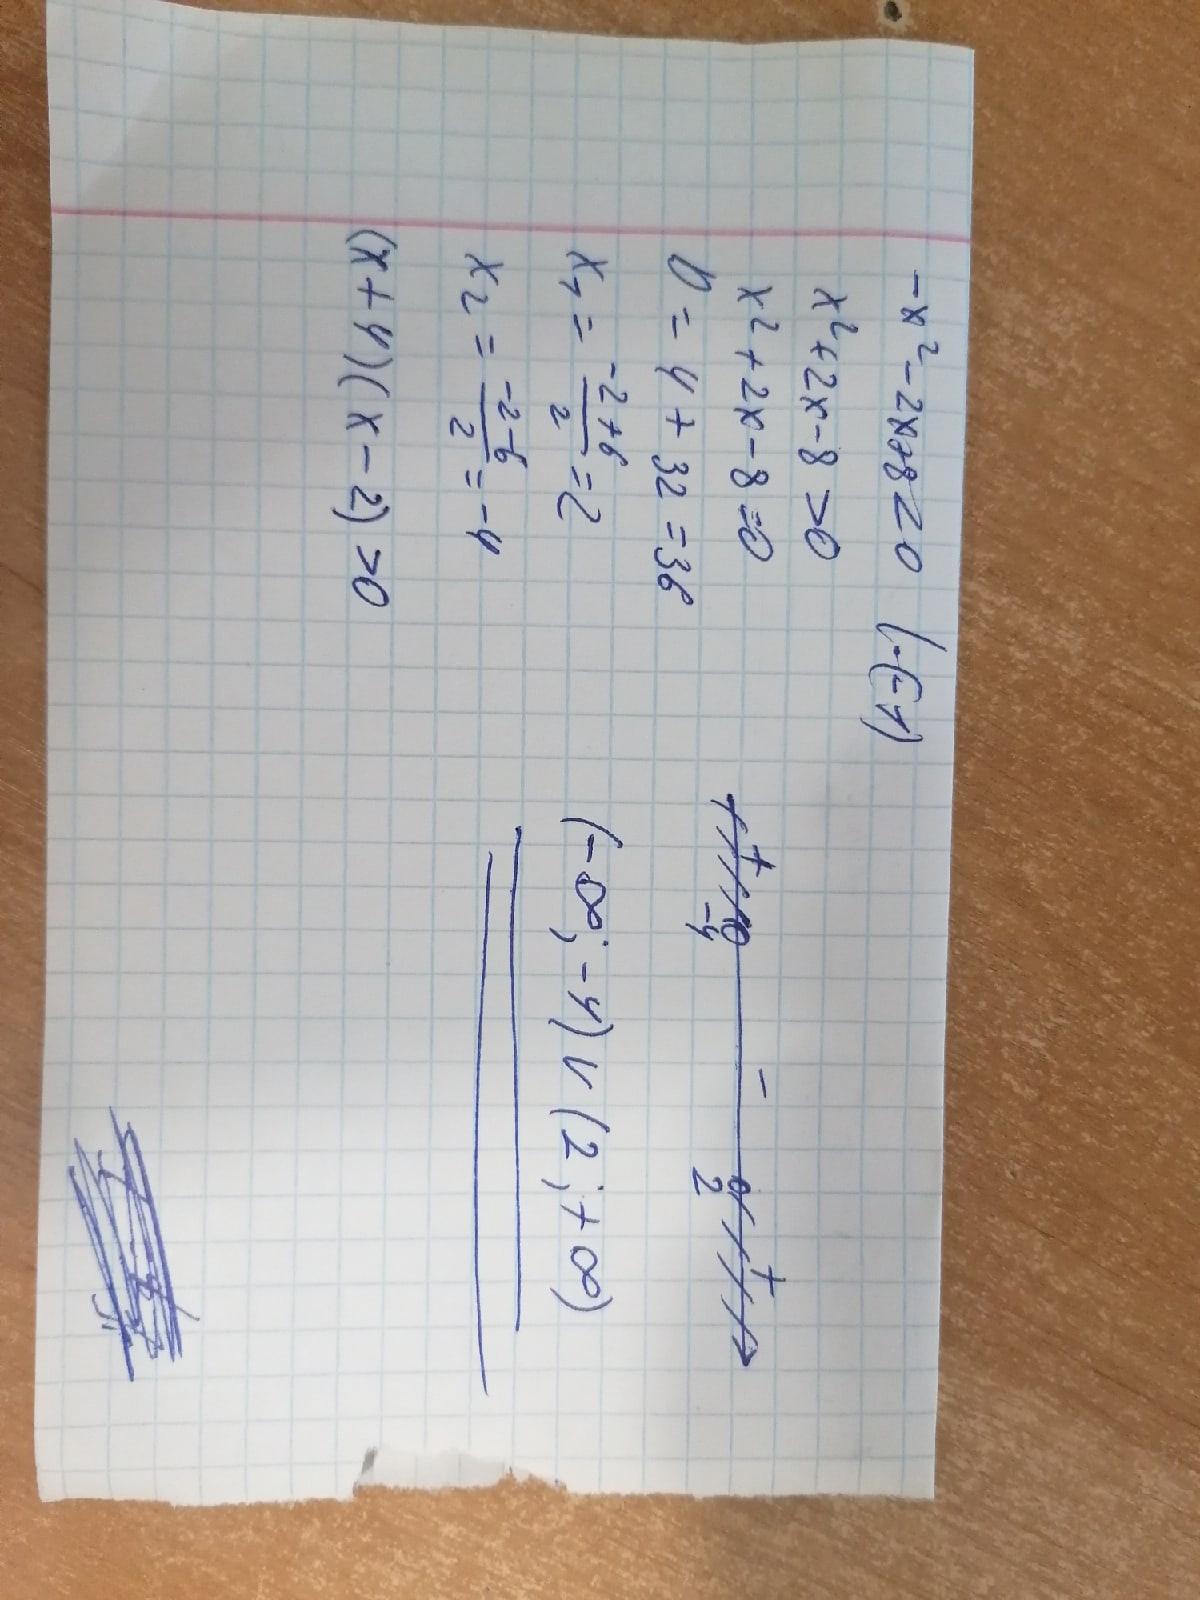 -x²-2x+8<0 (·(-1)
x²+2x-8>0
x²+2x-8=0
D=4+32=36
x₁=(-2+6)/2=2
x₂=(-2-6)/2=-4
(x+4)(x-2)>0
+ - +
-4 2
(-∞;-4)∪(2;+∞)